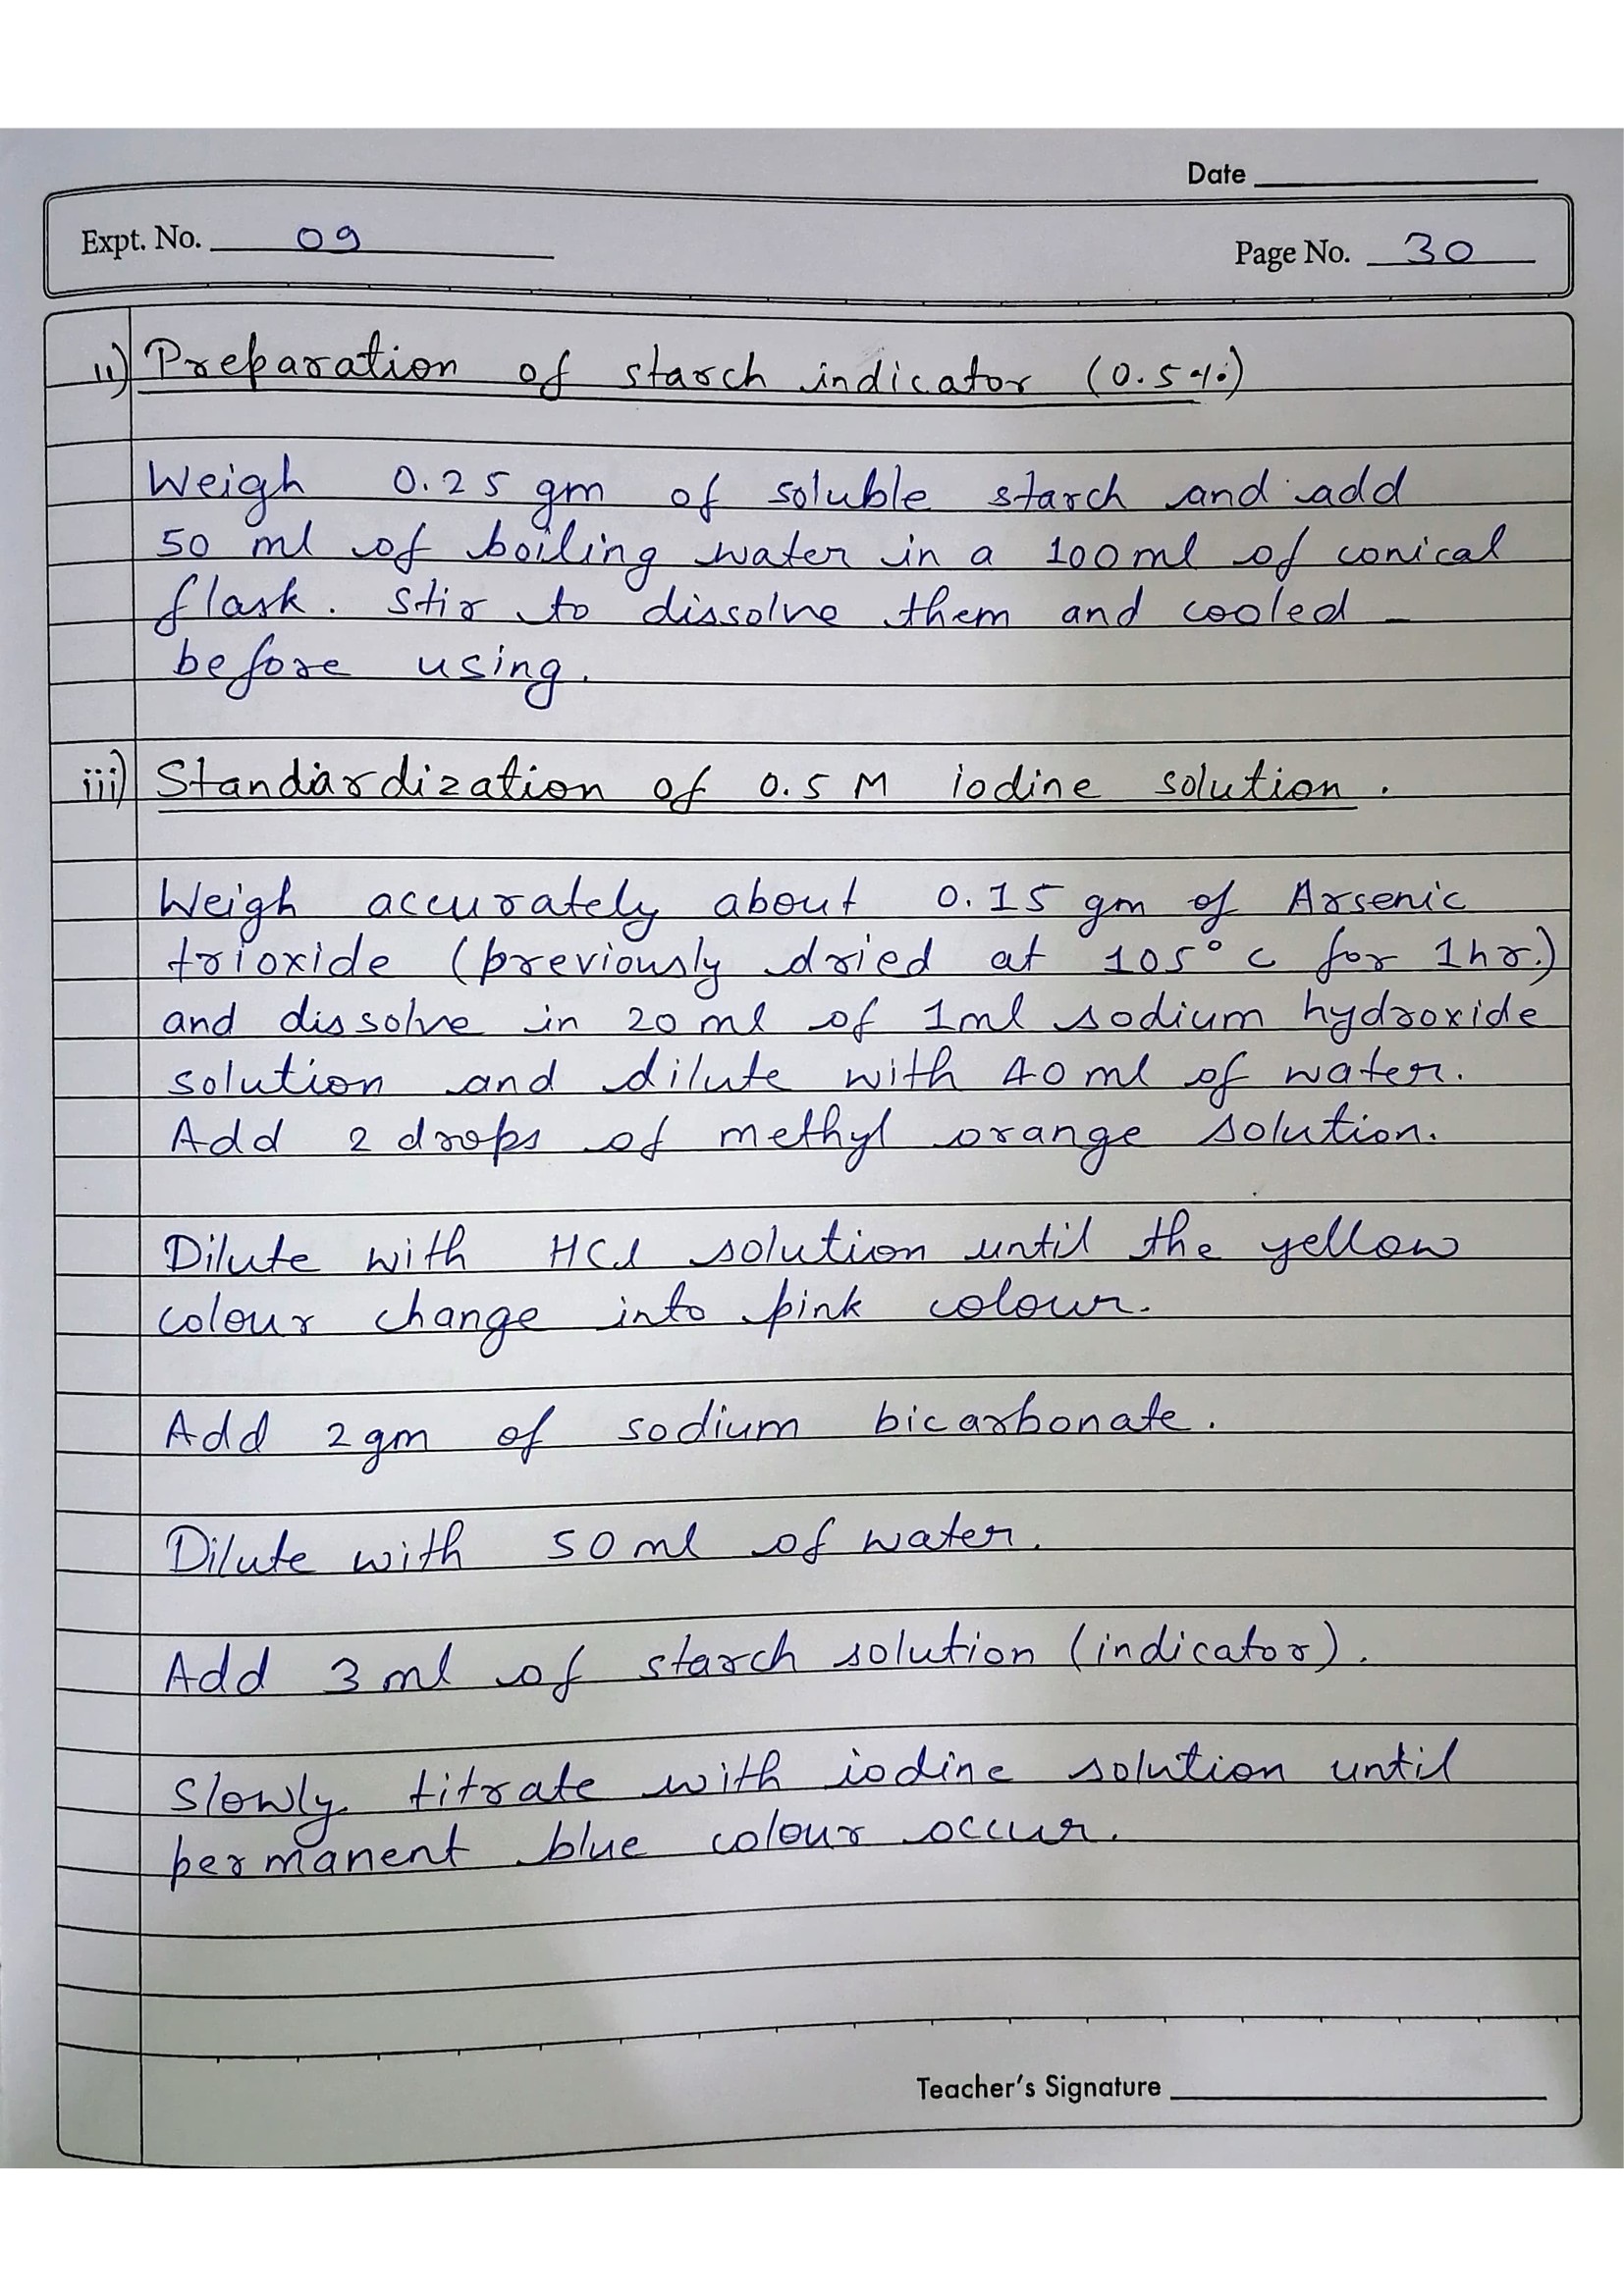 Date
Expt. No. 09
Page No. 30
ii) Preparation of starch indicator (0.5%)
Weigh 0.25 gm of soluble starch and add
50 ml of boiling water in a 100 ml of conical
flask. Stir to dissolve them and cooled
before using.
iii) Standardization of 0.5 M iodine solution.
Weigh accurately about 0.15 gm of Arsenic
trioxide (previously dried at 105°c for 1hr.)
and dissolve in 20 ml of 1ml sodium hydroxide
solution and dilute with 40 ml of water.
Add 2 drops of methyl orange solution.
Dilute with HCl solution until the yellow
colour change into pink colour.
Add 2 gm of sodium bicarbonate.
Dilute with 50 ml of water.
Add 3 ml of starch solution (indicator).
Slowly titrate with iodine solution until
permanent blue colour occur.
Teacher's Signature